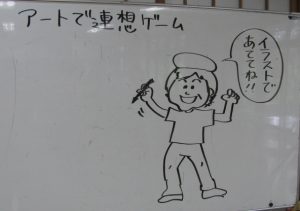 アートでっ連想ゲーム
イラストで
あててね!!